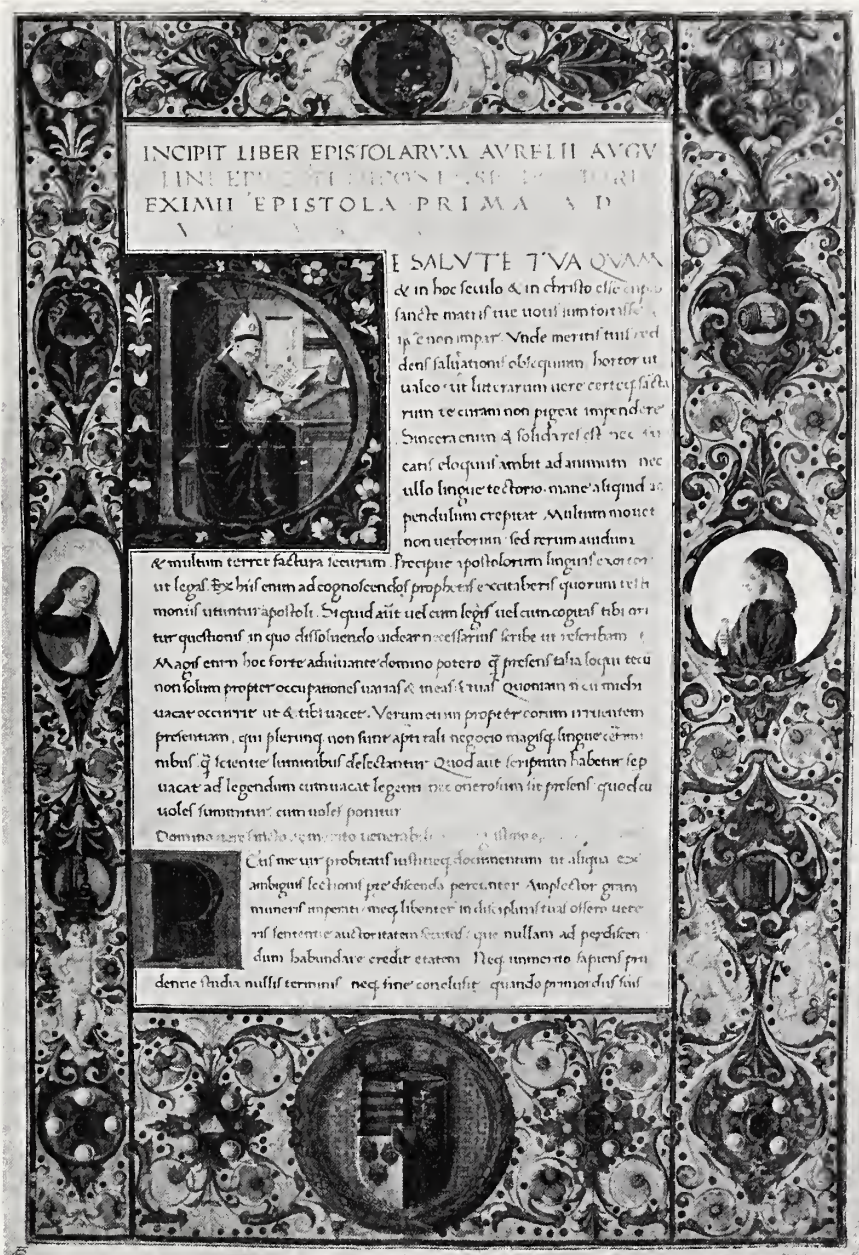 INCIPIT LIBER EPISTOLARVM AVRELII AVGV
EXIMII EPISTOLA PRIMA AD
DE SALVTE TVA QVAM
& in hoc seculo & in christo esse
sancte matris tue uotis sim fortisse
ipse non impar. Vnde meritis tuis red
dens salutationis obsequium hortor ut
ualeo ut litterarum uere certeq sacta
rum te curam non pigeat impendere
Sincera enim & solida res est nec fu
catis eloquiis ambit ad animum nec
ullo lingue tectorio mane aliquid ac
pendulum crepitat Multum mouet
non uerborum sed rerum auidum
& multum terret factura securum. Precipue apostolorum linguas exortor
ut legas. Ex hiis enim ad cognoscendos prophetas excitaberis quorum testi
moniis utuntur apostoli. Siquid aut uel cum legis uel cum cogitas tibi ori
tur questionis in quo dissoluendo uidear necessarius scribe ut rescribam
Magis enim hoc forte adiuuante domino potero q̃ presens talia loqui tecũ
non solum propter occupationes uarias & meas & tuas Quoniam n cũ michi
uacat occurrit ut & tibi uacet. Verum etiam propter eorum irruentem
presentiam, qui plerunq non sunt apti tali negocio magisq lingue certmi
nibus q̃ scientie luminibus delectantur Quod aut scriptum habetur sep
uacat ad legendum cum uacat legenti nec onerosum fit presens quod cũ
uoles sumitur, cum uoles ponitur
Domino uere sancto ac merito uenerabili
Cuis me uir probitatis iustitieq documentum ut aliqua ex
ambiguis lectionis pre discenda percunter Amplector gram
muneris imperiti meq libenter in disciplinis tuas offero uete
ris sententie auctoritatem secutus que nullam ad perdiscen
dum habundare credit etatem Neq immerito sapiens pru
dentie studia nullis terminis neq fine conclusit quando primordiis suis